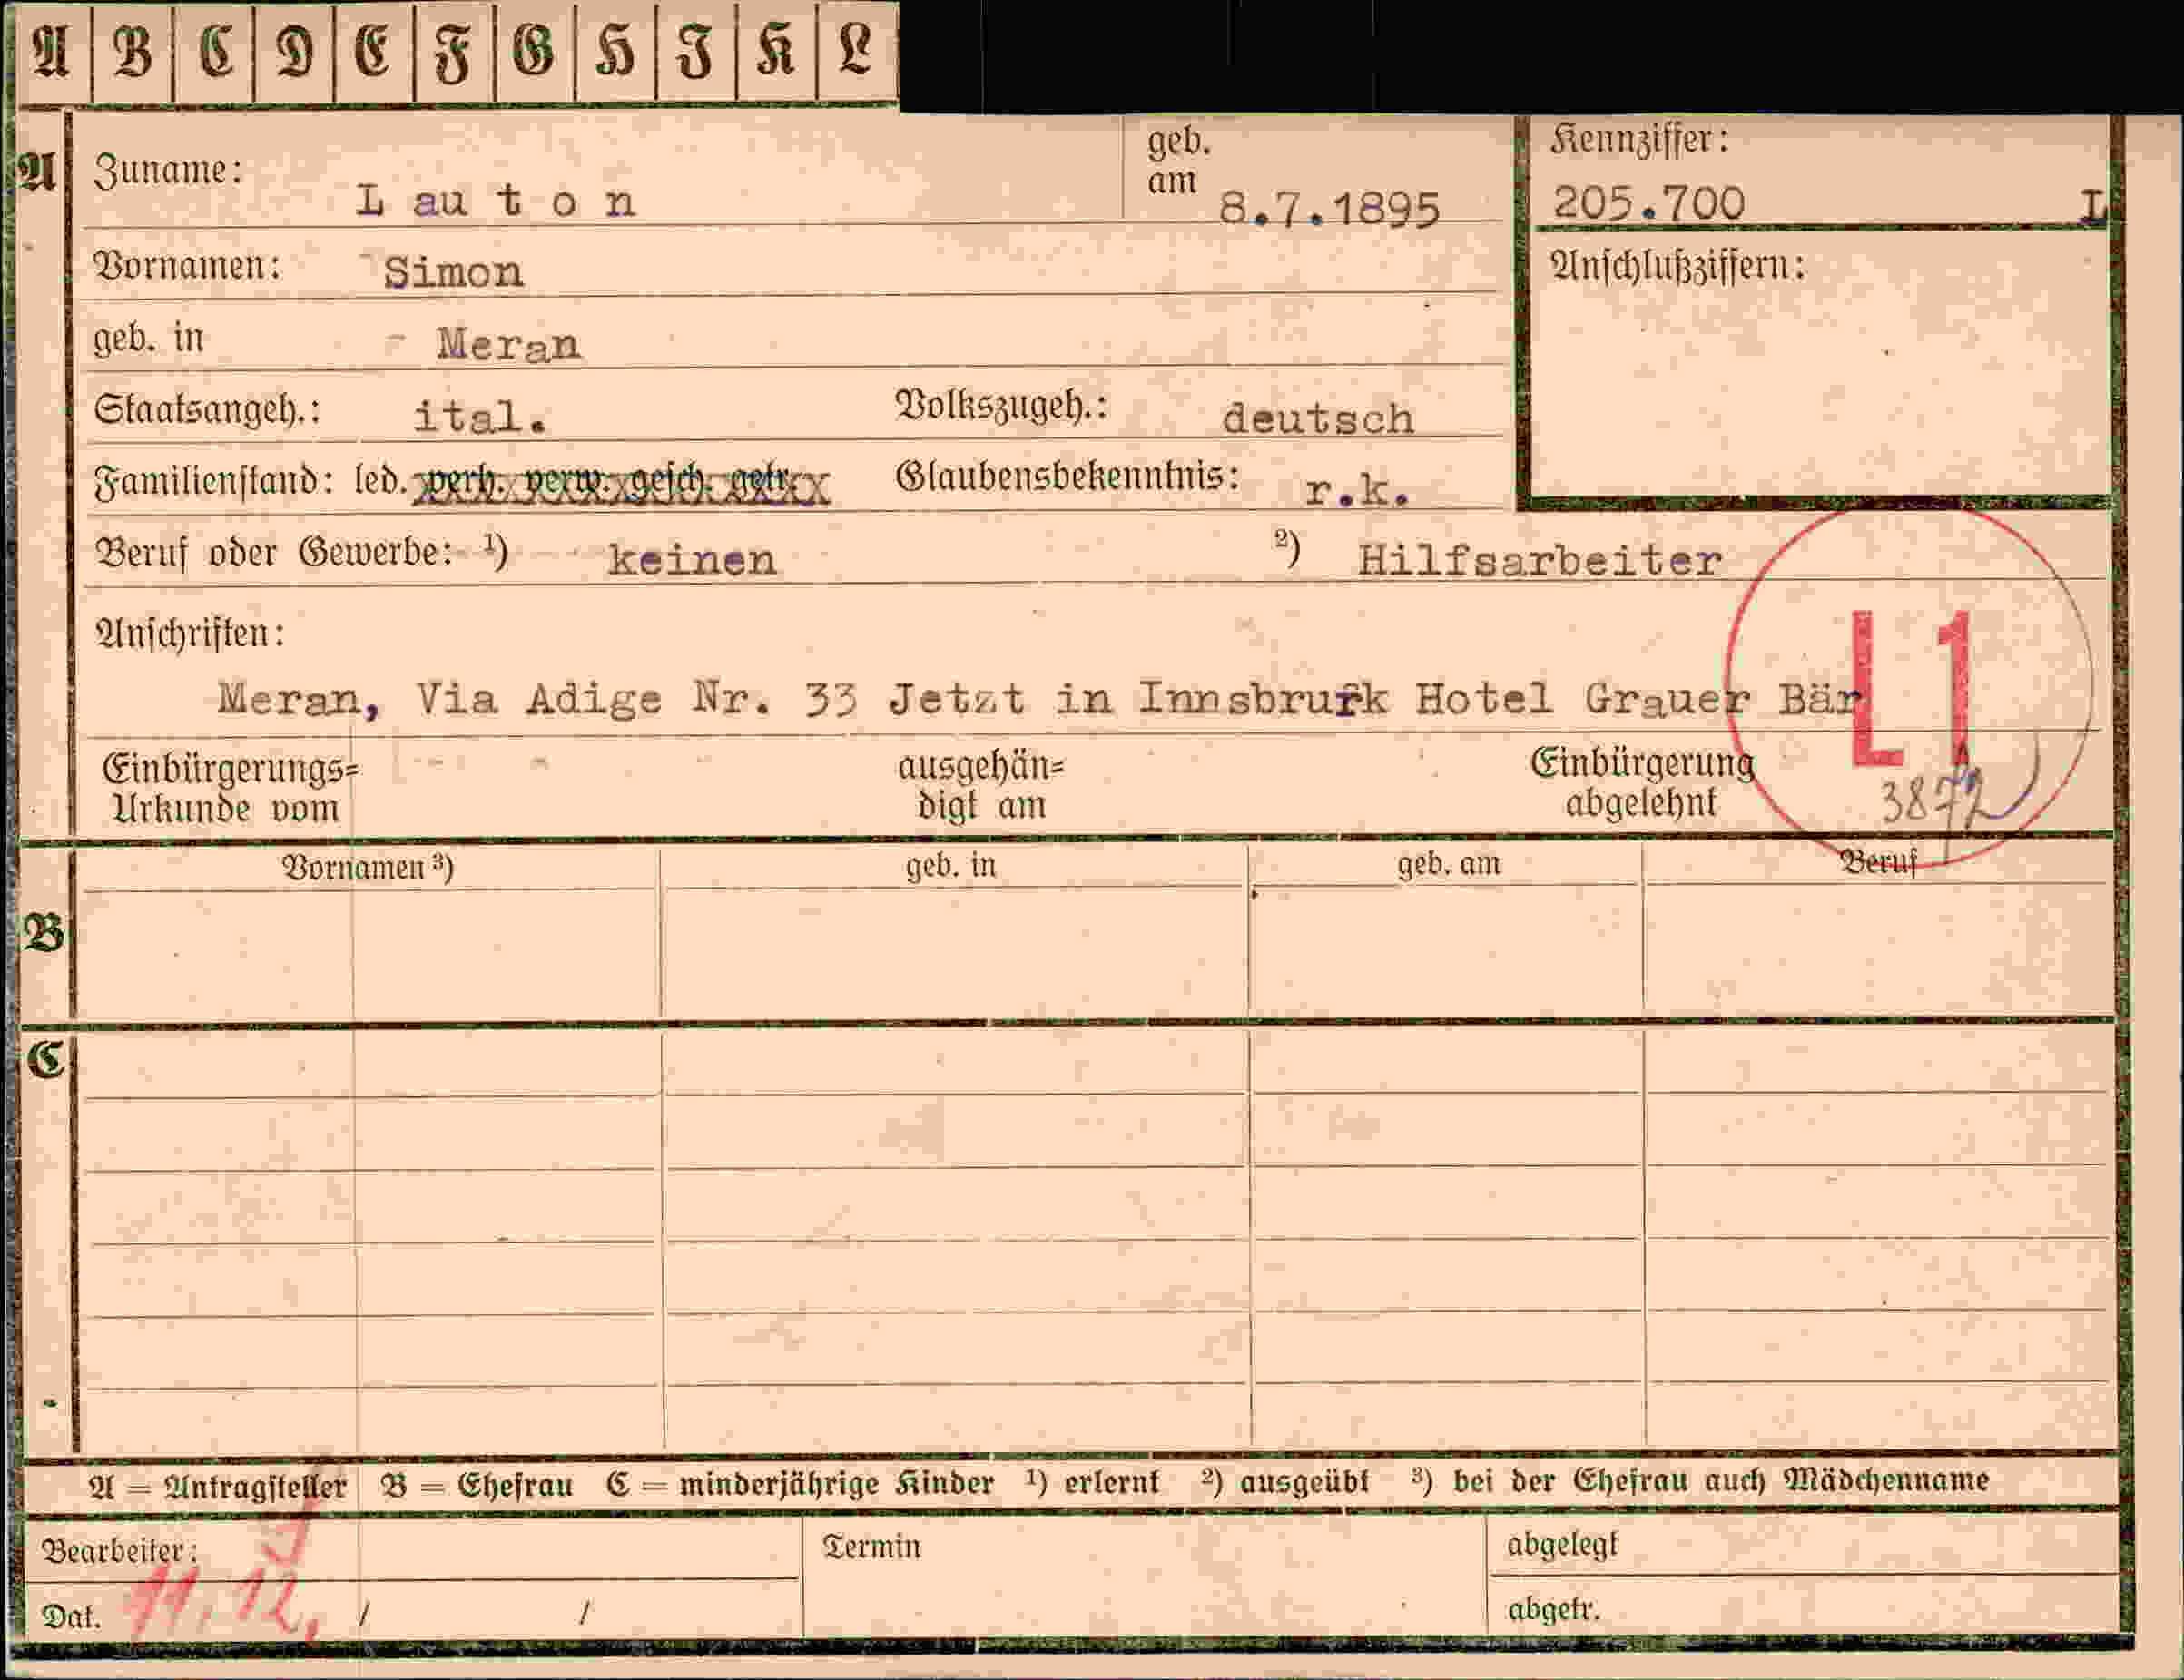 A B C D E F G H J K L
A Zuname: Lauton geb. am 8.7.1895 Kennziffer: 205.700 I
Vornamen: Simon Anschlußziffern:
geb. in Meran
Staatsangeh.: ital. Volkszugeh.: deutsch
Familienstand: led. verh. verw. gesch. getr. Glaubensbekenntnis: r.k.
Beruf oder Gewerbe: ¹) keinen ²) Hilfsarbeiter
Anschriften:
L1
Meran, Via Adige Nr. 33 Jetzt in Innsbruck Hotel Grauer Bär
Einbürgerungs= ausgehän= Einbürgerung
Urkunde vom digt am abgelehnt 3872
Vornamen ³) geb. in geb. am Beruf
B
C
A = Antragsteller B = Ehefrau C = minderjährige Kinder ¹) erlernt ²) ausgeübt ³) bei der Ehefrau auch Mädchenname
Bearbeiter: Termin abgelegt
Dat. 11.12. / / abgetr.